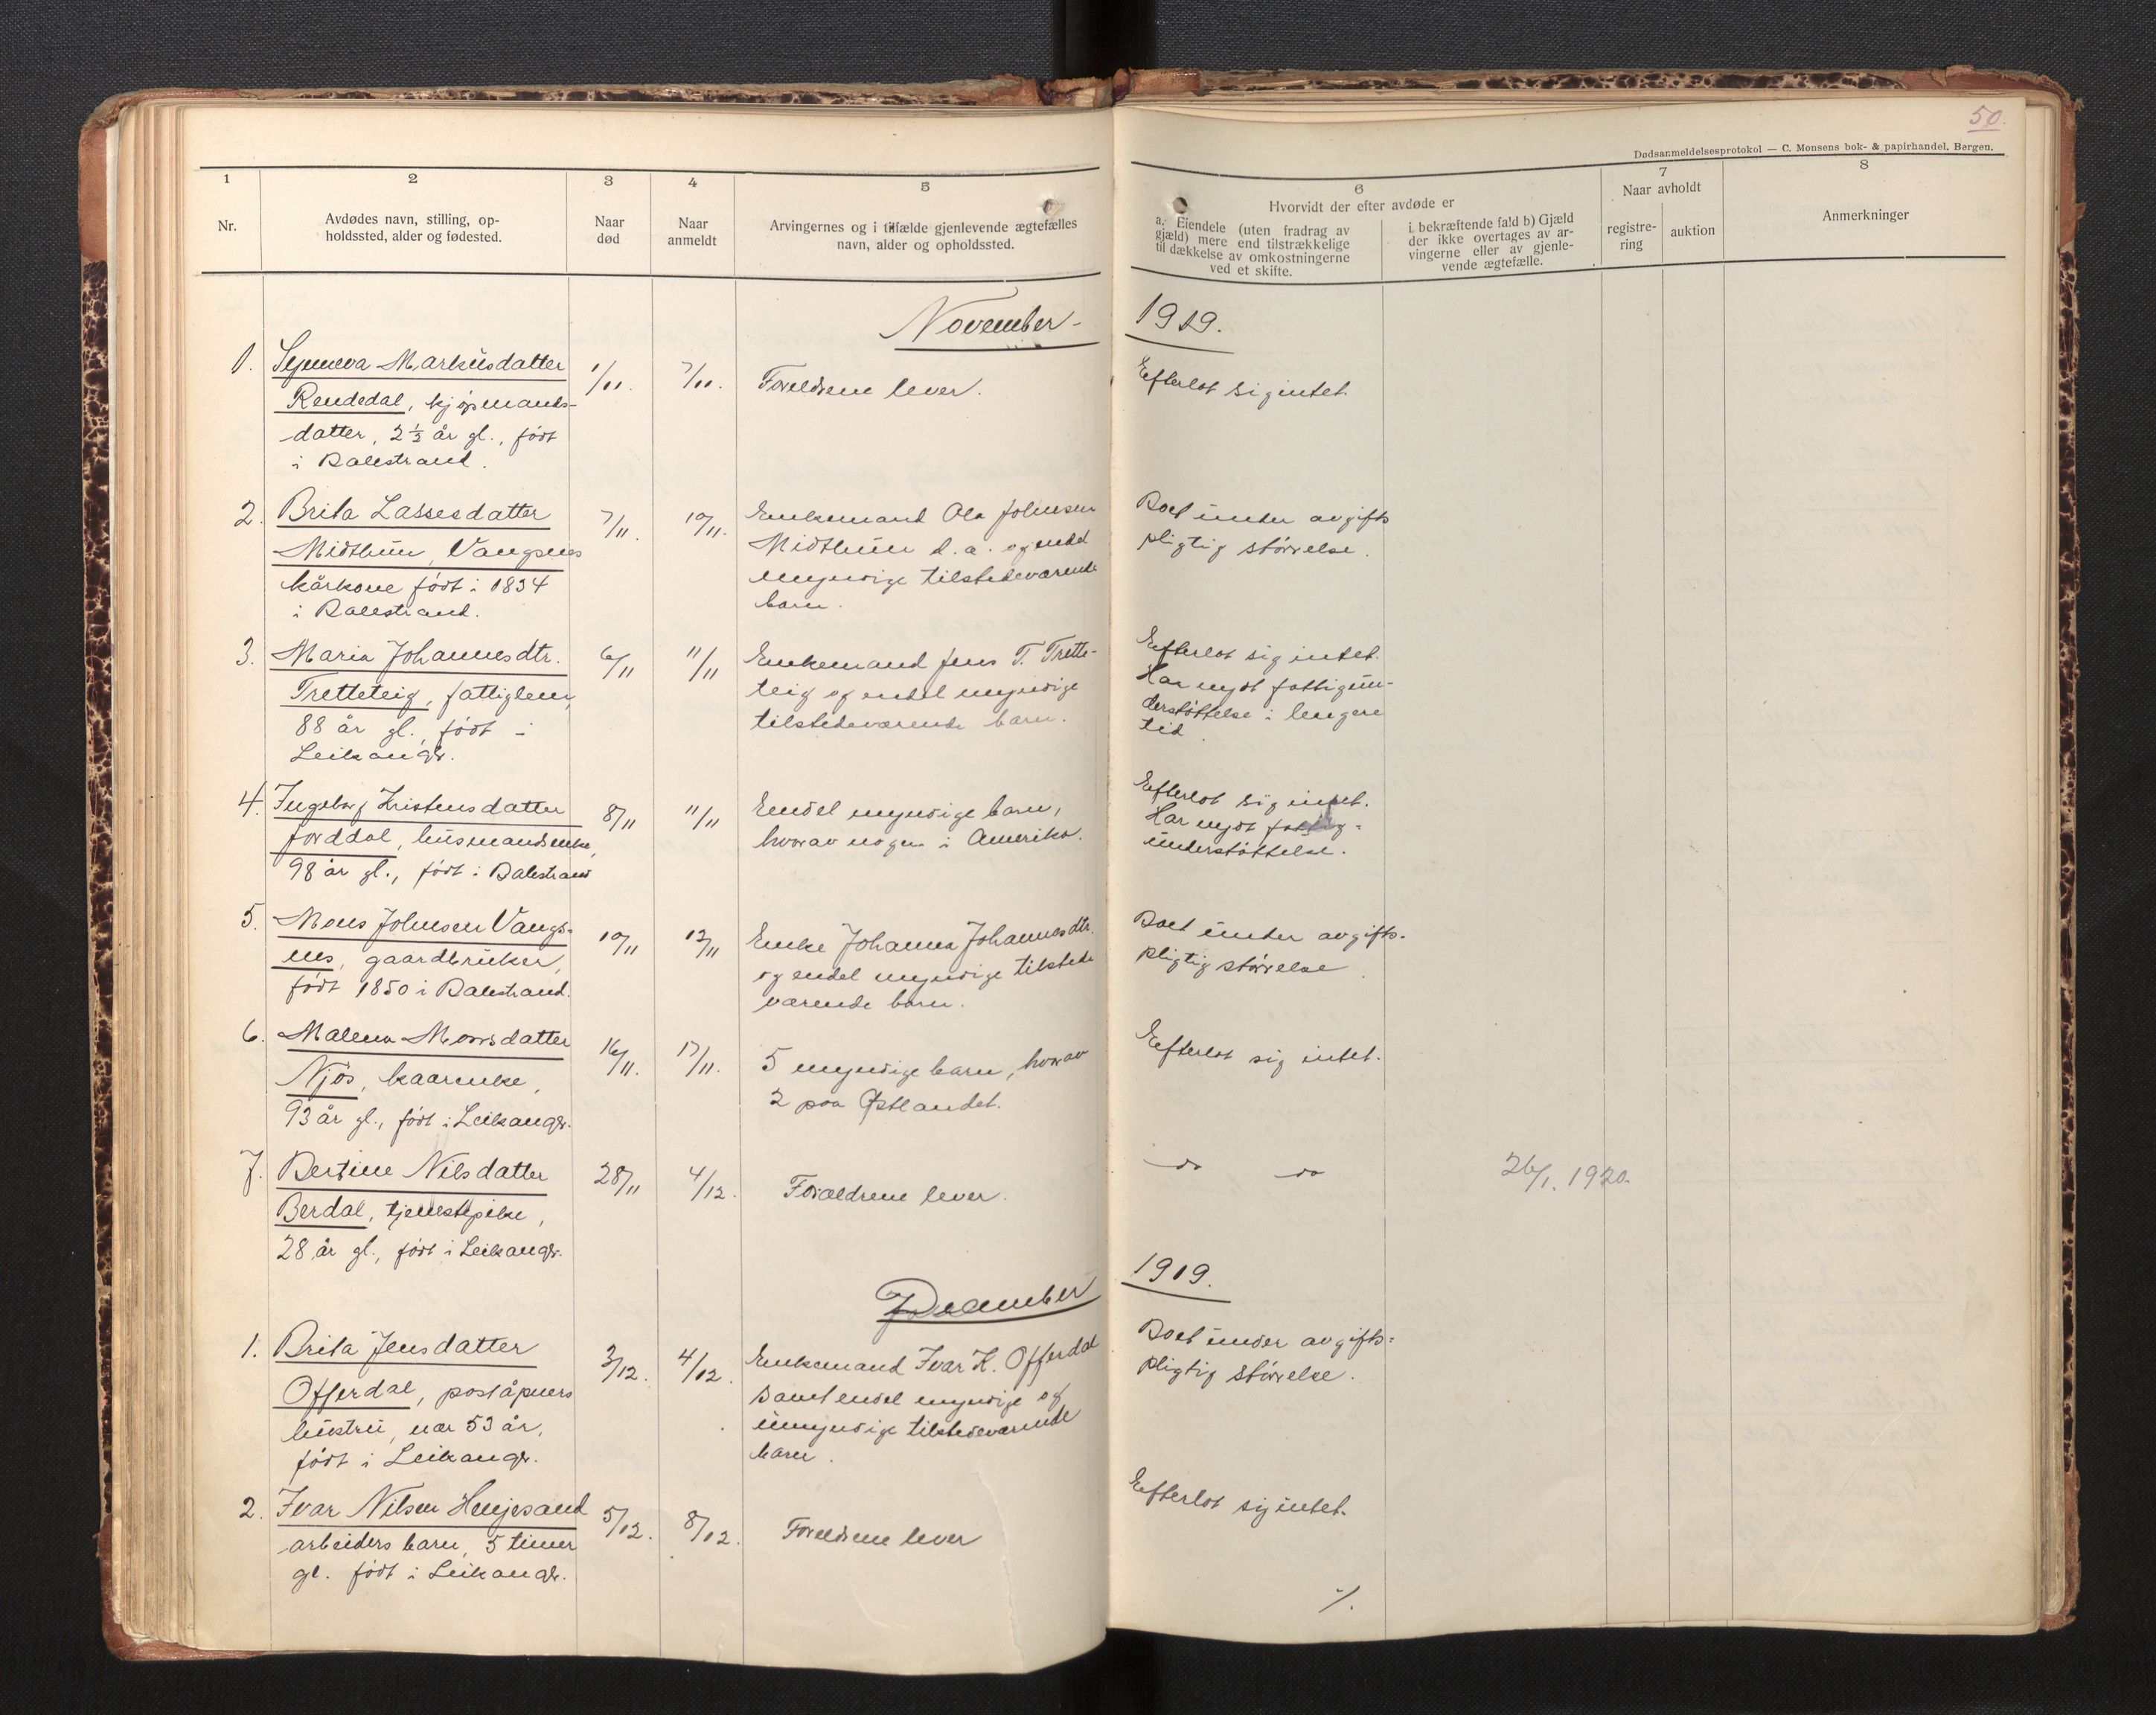 50.
Dødsanmeldelsesprotokol — C. Monsens bok- & papirhandel, Bergen.
1
2
3
4
5
6
7
8
Nr.
Avdødes navn, stilling, op-
holdssted, alder og fødested.
Naar
død
Naar
anmeldt
Arvingernes og i tilfælde gjenlevende ægtefælles
navn, alder og opholdssted.
Hvorvidt der efter avdøde er
a. Eiendele (uten fradrag av
gjæld) mere end tilstrækkelige
til dækkelse av omkostningerne
ved et skifte.
i bekræftende fald b) Gjæld
der ikke overtages av ar-
vingerne eller av gjenle-
vende ægtefælle.
Naar avholdt
registre-
ring
auktion
Anmerkninger
November - 1919.
1. Synneva Markusdatter
Rendedal, kjøpmands-
datter, 2½ år gl., født
i Balestrand.
1/11.
7/11.
Foreldrene lever.
Efterlot sig intet.
2. Brita Lassesdatter
Midthun, Vangsnes
kårkone født i 1834
i Balestrand.
7/11.
10/11.
Enkemand Ola Johnsen
Midthun d. a. og endel
myndige tilstedeværende
barn.
Boet under avgifts
pligtig størrelse.
3. Maria Johannesdtr.
Tretteteig, fattiglem,
88 år gl., født i
Leikangr.
6/11
11/11
Enkemand Jens T. Trette-
teig og endel myndige
tilstedeværende barn.
Efterlot sig intet.
Har nydt fattigun-
derstøttelse i lengere
tid.
4. Ingeborg Kristensdatter
Jorddal, husmandsenke,
98 år gl., født i Balestrand
8/11
11/11
Endel myndige barn,
hvorav nogen i Amerika.
Efterlot sig intet.
Har nydt fattig-
understøttelse.
5. Mons Johnsen Vangs-
nes, gaardbruker,
født 1850 i Balestrand.
10/11
12/11
Enke Johanna Johannesdtr.
og endel myndige tilstede
værende barn.
Boet under avgifts-
pligtig størrelse.
6. Malena Monsdatter
Njøs, kaarenke,
93 år gl., født i Leikangr.
16/11.
17/11.
5 myndige barn, hvorav
2 paa Østlandet.
Efterlot sig intet.
7. Bertine Nilsdatter
Berdal, tjenestepike,
28 år gl., født i Leikangr.
28/11
4/12.
Foræeldrene lever.
do do
26/1. 1920.
December 1919.
1. Brita Jensdatter
Offerdal, poståpners
hustru, nær 53 år,
født i Leikangr.
3/12.
4/12.
Enkemand Ivar K. Offerdal
samt endel myndige og
umyndige tilstedeværende
barn.
Boet under avgifts-
pligtig størrelse.
2. Ivar Nilsen Henjesand
arbeiders barn, 5 timer
gl. født i Leikangr.
5/12.
8/12.
Foreldrene lever
Efterlot sig intet.